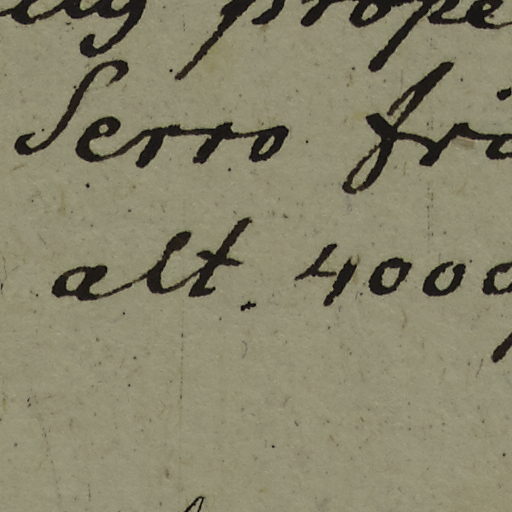 prope
Serro fri
alt. 4000